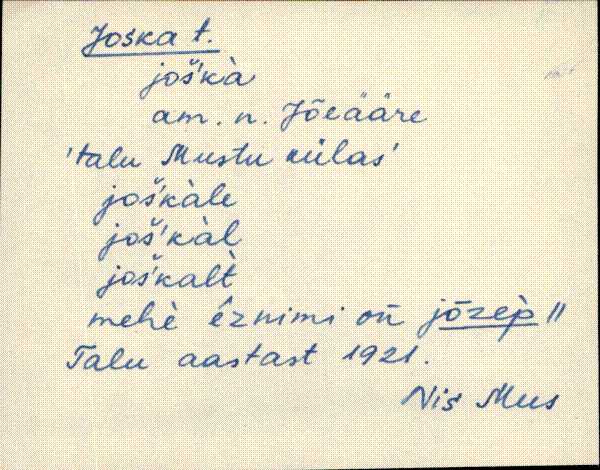 Joska t.
još̀kà
am. n. Jõeääre
'talu Mustu külas'
još̀kàle
još̀kàl
još̀kalt̀
mehè êznimi on̄ jōzèp̀ ||
Talu aastast 1921.
Nis Mus